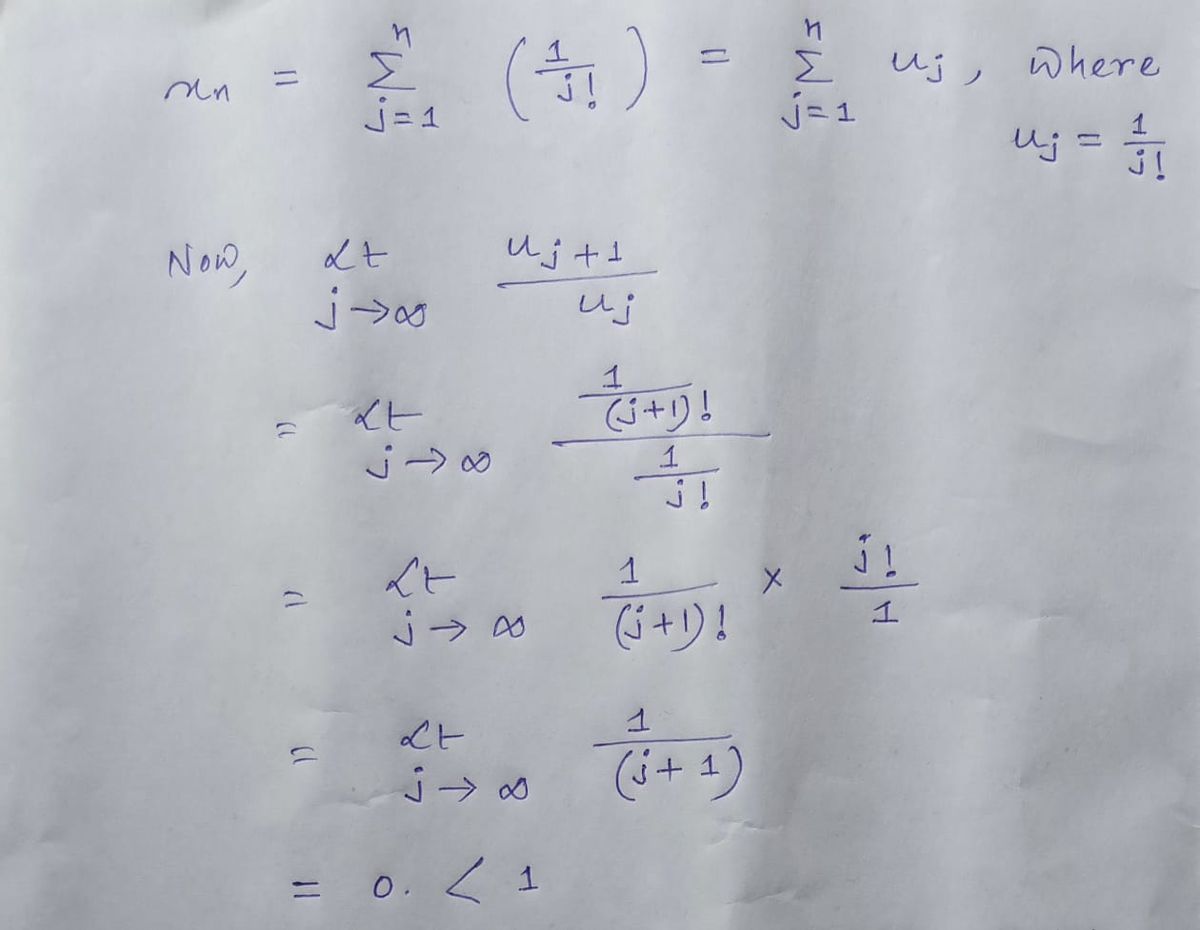 xn = Σ_{j=1}^{n} (1/j!) = Σ_{j=1}^{n} uj, where
uj = 1/j!
Now, Lt_{j→∞} (uj+1)/(uj)
= Lt_{j→∞} (1/(j+1)!)/(1/j!)
= Lt_{j→∞} 1/(j+1)! × j!/1
= Lt_{j→∞} 1/(j+1)
= 0. < 1